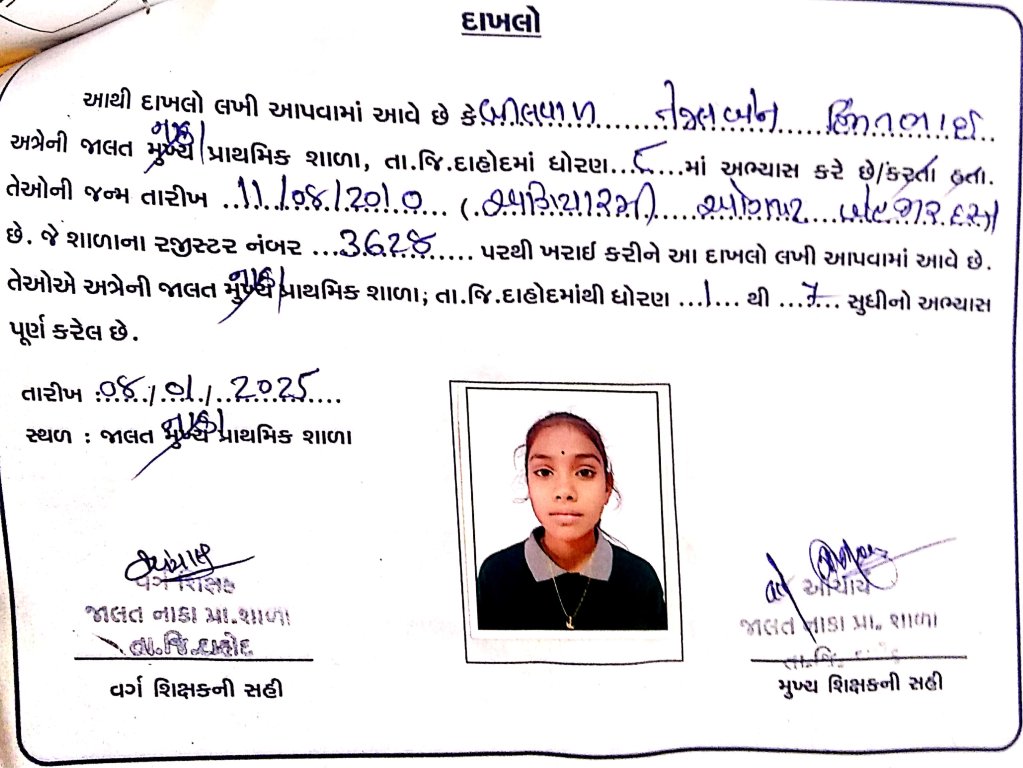 દાખલો
આથી દાખલો લખી આપવામાં આવે છે કે બીલવાળ તેજલબેન હિંમતભાઈ
અત્રેની જાલત મુખ્ય નાકા પ્રાથમિક શાળા, તા.જિ.દાહોદમાં ધોરણ...૮...માં અભ્યાસ કરે છે/કરતા હતા.
તેઓની જન્મ તારીખ ..11/08/2010.... (અગિયારમી ઓગષ્ટ
છે. જે શાળાના રજીસ્ટર નંબર ...3628...... પરથી ખરાઈ કરીને આ દાખલો લખી આપવામાં આવે છે.
તેઓએ અત્રેની જાલત મુખ્ય નાકા પ્રાથમિક શાળા; તા.જિ.દાહોદમાંથી ધોરણ ...1... થી ...7... સુધીનો અભ્યાસ
પૂર્ણ કરેલ છે.
તારીખ :08/01/2025....
સ્થળ : જાલત મુખ્ય નાકા પ્રાથમિક શાળા
વર્ગ શિક્ષક
જાલત નાકા પ્રા.શાળા
તા.જિ.દાહોદ
વર્ગ શિક્ષકની સહી
આચાર્ય
જાલત નાકા પ્રા. શાળા
તા.જિ. દાહોદ
મુખ્ય શિક્ષકની સહી